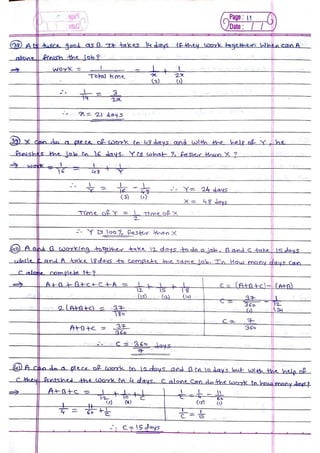 Page: 11
Date: / /
(38) A is twice good as B. It takes 14 days if they work together. When can A
alone finish the job?
⇒ work = 1/Total time = 1/x + 1/2x
(2) (1)
∴ 1/14 = 3/2x
∴ x = 21 days
(39) X can do a piece of work in 48 days and with the help of Y, he
finishes the job in 16 days. Y is what % faster than X?
⇒ work = 1/16 = 1/48 + 1/Y
∴ 1/Y = 1/16 - 1/48 ∴ Y = 24 days
(3) (1) X = 48 days
Time of Y = 1/2 Time of X
∴ Y is 100% faster than X
(40) A and B working together take 12 days to do a job. B and C take 15 days
while C and A take 18 days to complete the same job. In How many days can
C alone complete it?
⇒ A+B+B+C+C+A = 1/12 + 1/15 + 1/18 C = (A+B+C) - (A+B)
(15) (12) (10)
2(A+B+C) = 37/180 C = 37/360 - 1/12
(1)
A+B+C = 37/360 C = 7/360
∴ C = 360/7 days
(41) A can do a piece of work in 12 days and B in 10 days but with the help of
C they finished the work in 4 days. C alone can do the work in how many days?
⇒ A+B+C = 1/12 + 1/10 + 1/C 1/C = 1/4 - 11/60
1/4 = 11/60 + 1/C 1/C = 1/15
∴ C = 15 days